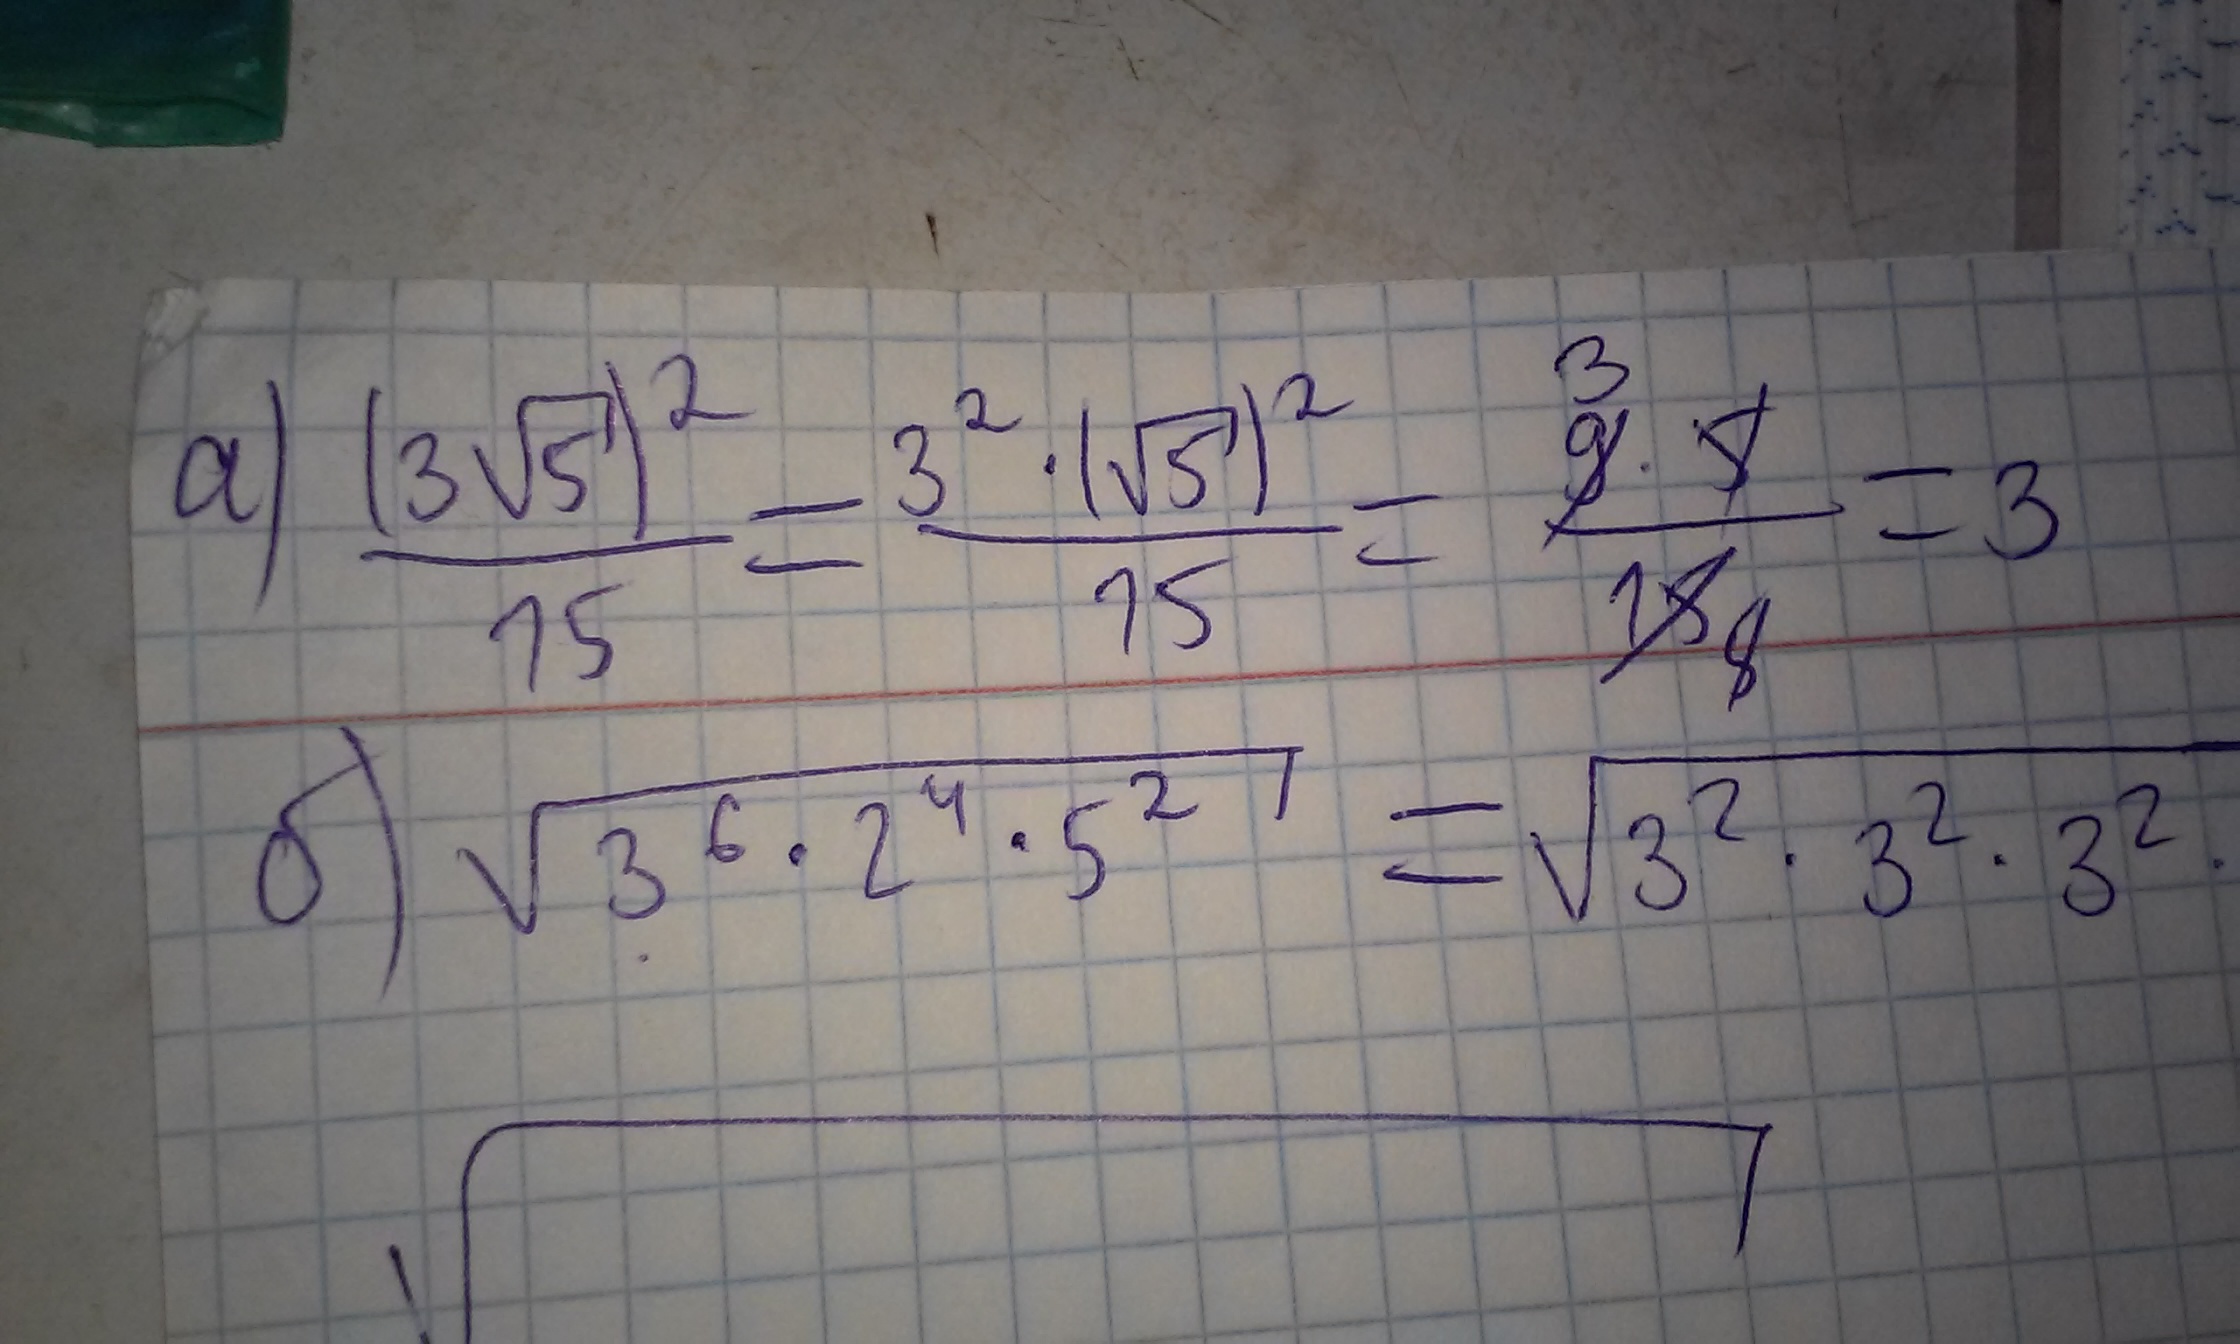 а) (3√5)² / 15 = 3² · (√5)² / 15 = 3 9 · 5 / 15 = 3
б) √3⁶ · 2⁴ · 5² = √3² · 3² · 3² ·
√